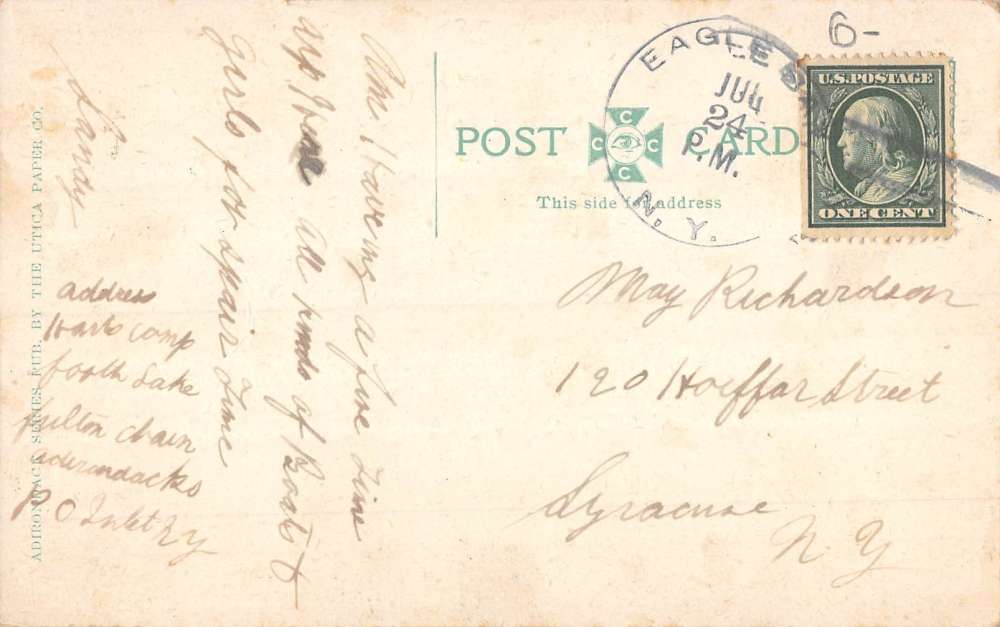 6-
EAGLE BAY
JUL
24
P.M.
N.Y.
U.S. POSTAGE
ONE CENT
POST CARD
C C C C
This side for address
May Richardson
120 Hoeffar Street
Syracuse
N Y
Am Haveing a fine Time
up Here all kinds of Boats &
Girls for spair Time
Landy
address
Harts Camp
forth Lake
fulton chain
adirondacks
P O Inlet N y
ADIRONDACK SERIES PUB. BY THE UTICA PAPER CO.